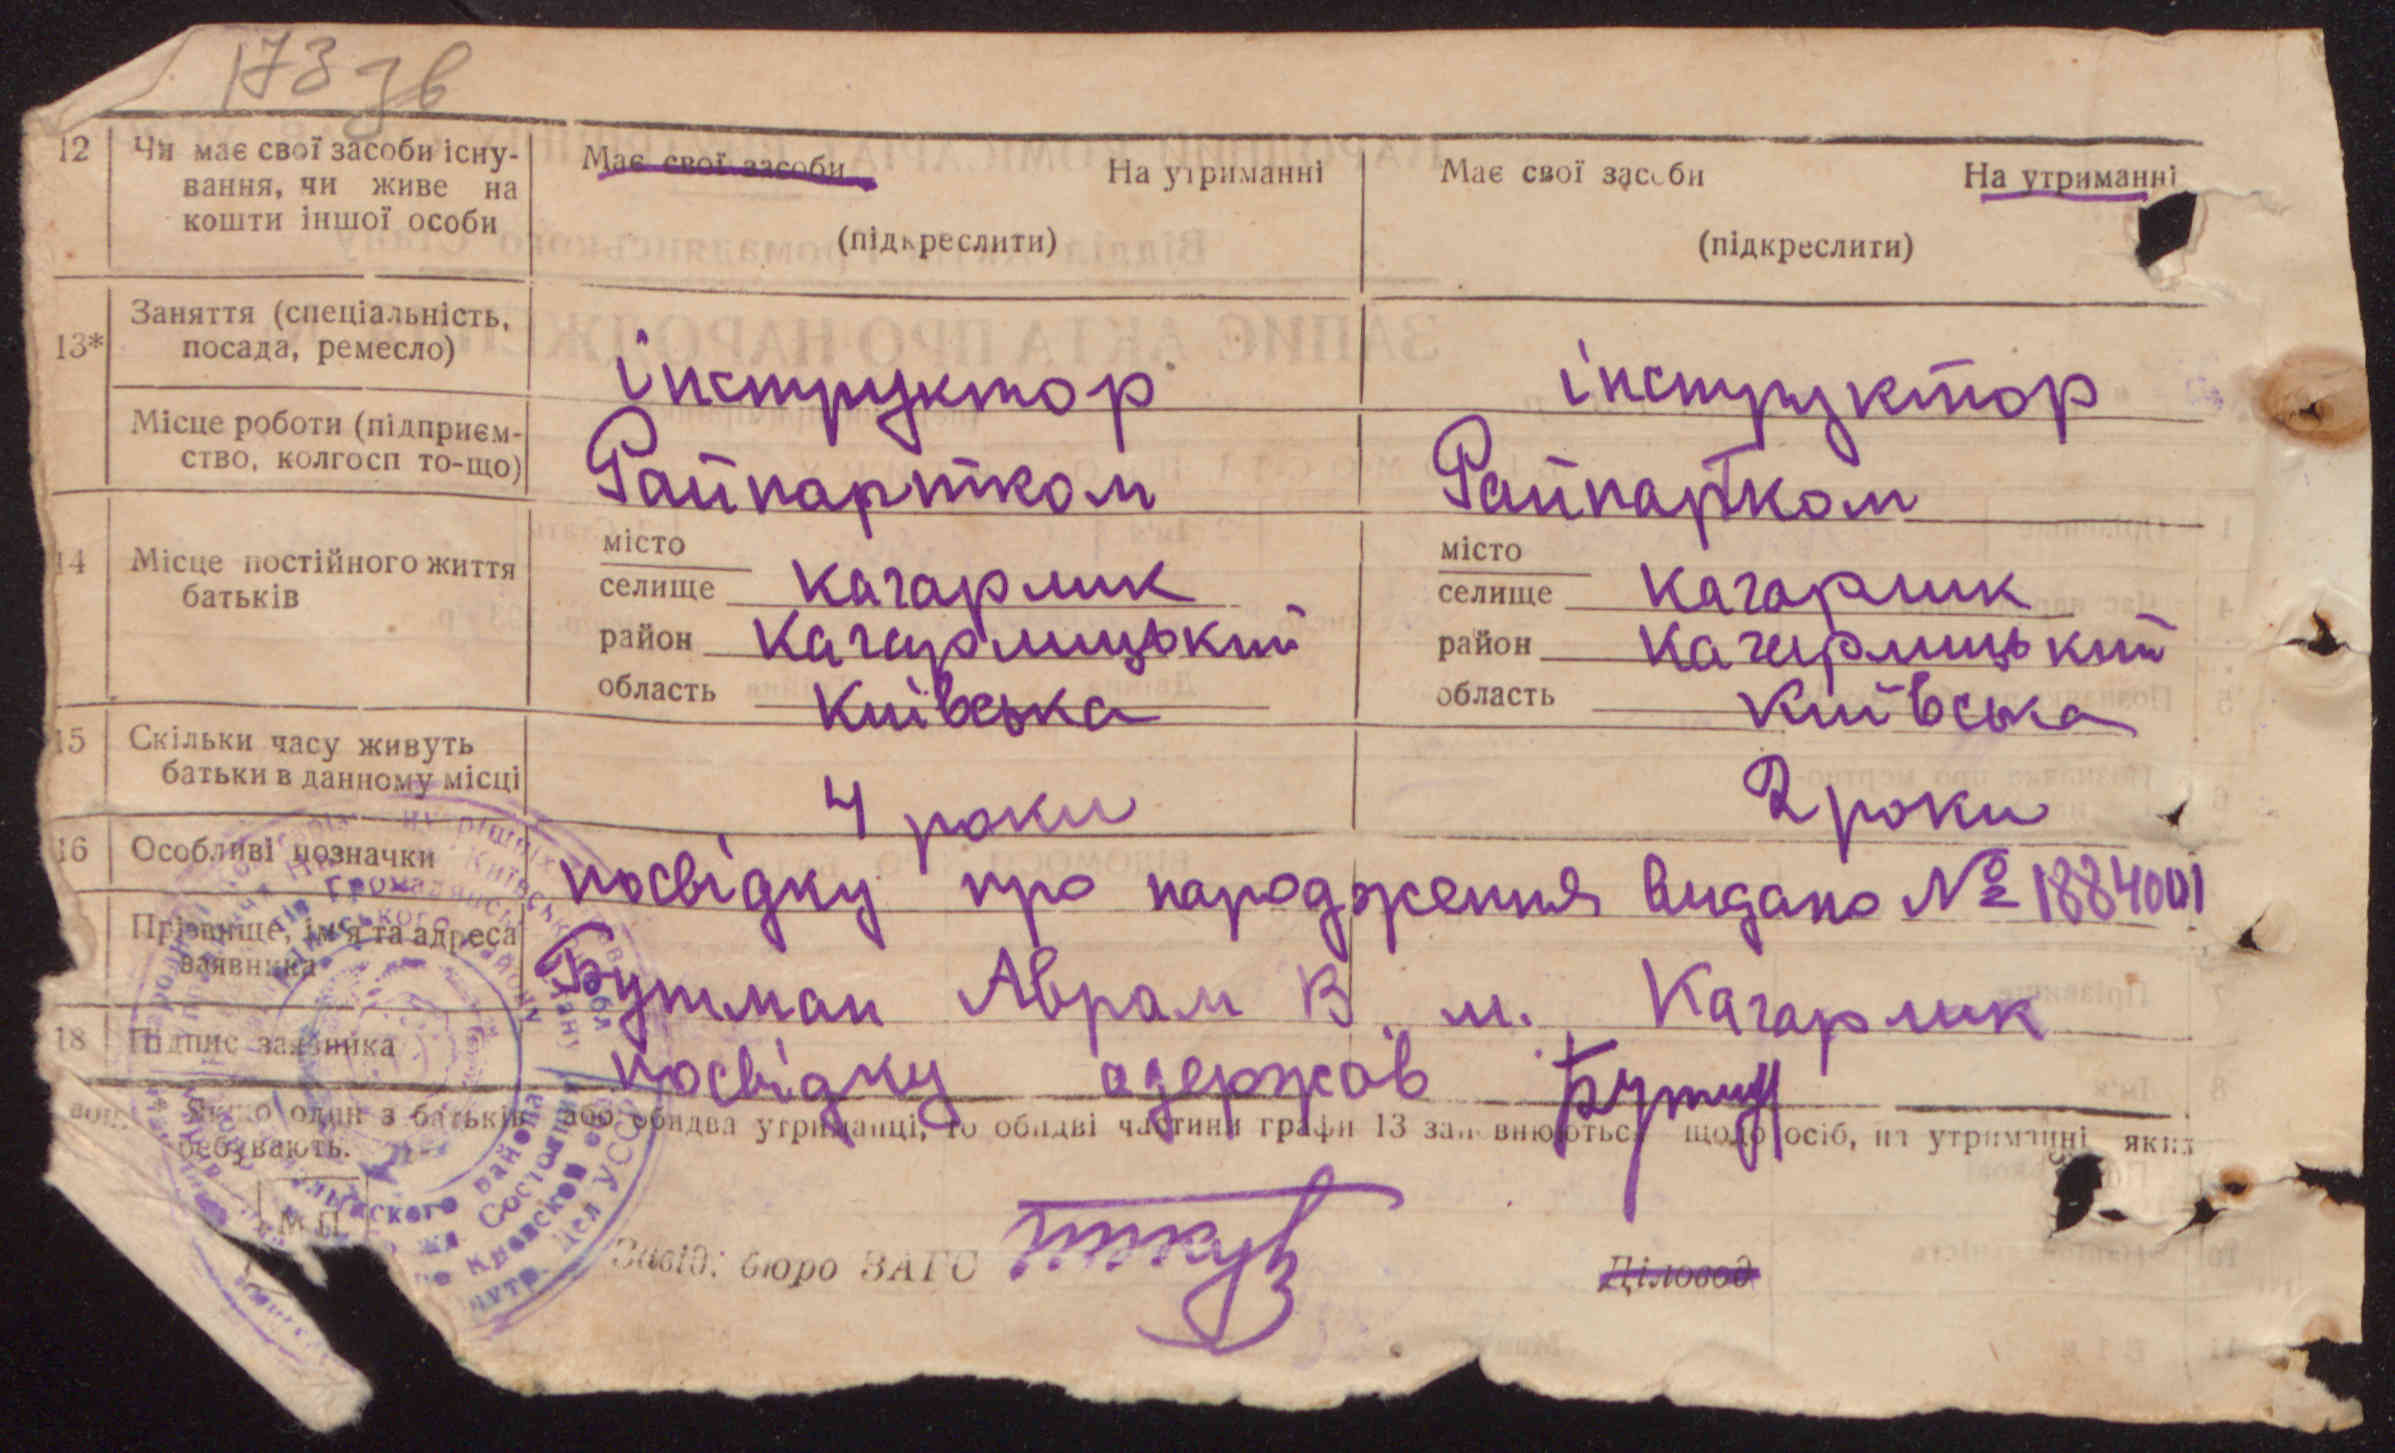 173 зв
12 Чи має свої засоби існу- Має свої засоби На утриманні Має свої засоби На утриманні
вання, чи живе на
кошти іншої особи (підкреслити) (підкреслити)
13* Заняття (спеціальність,
посада, ремесло) інструктор інструктор
Місце роботи (підприєм-
ство, колгосп то-що) Райпартком Райпартком
14 Місце постійного життя місто місто
батьків селище Кагарлик селище Кагарлик
район Кагарлицький район Кагарлицький
область Київська область Київська
15 Скільки часу живуть
батьки в данному місці 4 роки 2 роки
16 Особливі позначки посвідку про народження видано № 1884001
Прізвище, ім'я та адреса
заявника Бутман Аврам В м. Кагарлик
18 Підпис заявника посвідку одержав
* Якщо один з батьків або обидва утриманці, то обидві частини графи 13 заповнюються щодо осіб, на утриманні яких
ребувають.
М.П.
Завід. бюро ЗАГС Діловод